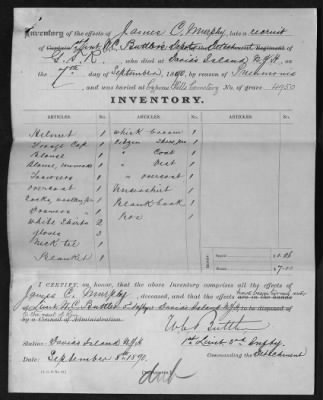 Inventory of the effects of James C. Murphy, late a recruit
of Captain Lieut W.C. Butler's Depot Detachment Regiment of
G.S.R. who died at Davids Island N.Y.H. on
the 7th day of September, 1890, by reason of Pneumonia
and was buried at Cypress Hills Cemetery No. of grave 4950
INVENTORY.
ARTICLES. No. ARTICLES. No.
Helmet 1 whisk broom 1
Forage Cap 1 Citizen Shoes, prs 1
Blouse 1 " Coat 1
Blouse, 1 " Vest 1
Trousers 1 " overcoat 1
overcoat 1 Undershirt 1
Socks, woolen, prs 1 Blank book 1
Drawers 1 Box 1
White Shirts 2
gloves 3
Neck tie 1
Blanket 1
I CERTIFY, on honor, that the above Inventory comprises all the effects of
James C. Murphy, deceased, and that the effects are in the hands
of Lieut W.C. Butler Davids Island N.Y.H. to be disposed of
by a Council of Administration.
W.C. Butler
Station: Davids Island N.Y.H. 1st Lieut 3rd Infty.
Date: September 8th 1890. Commanding the Detachment